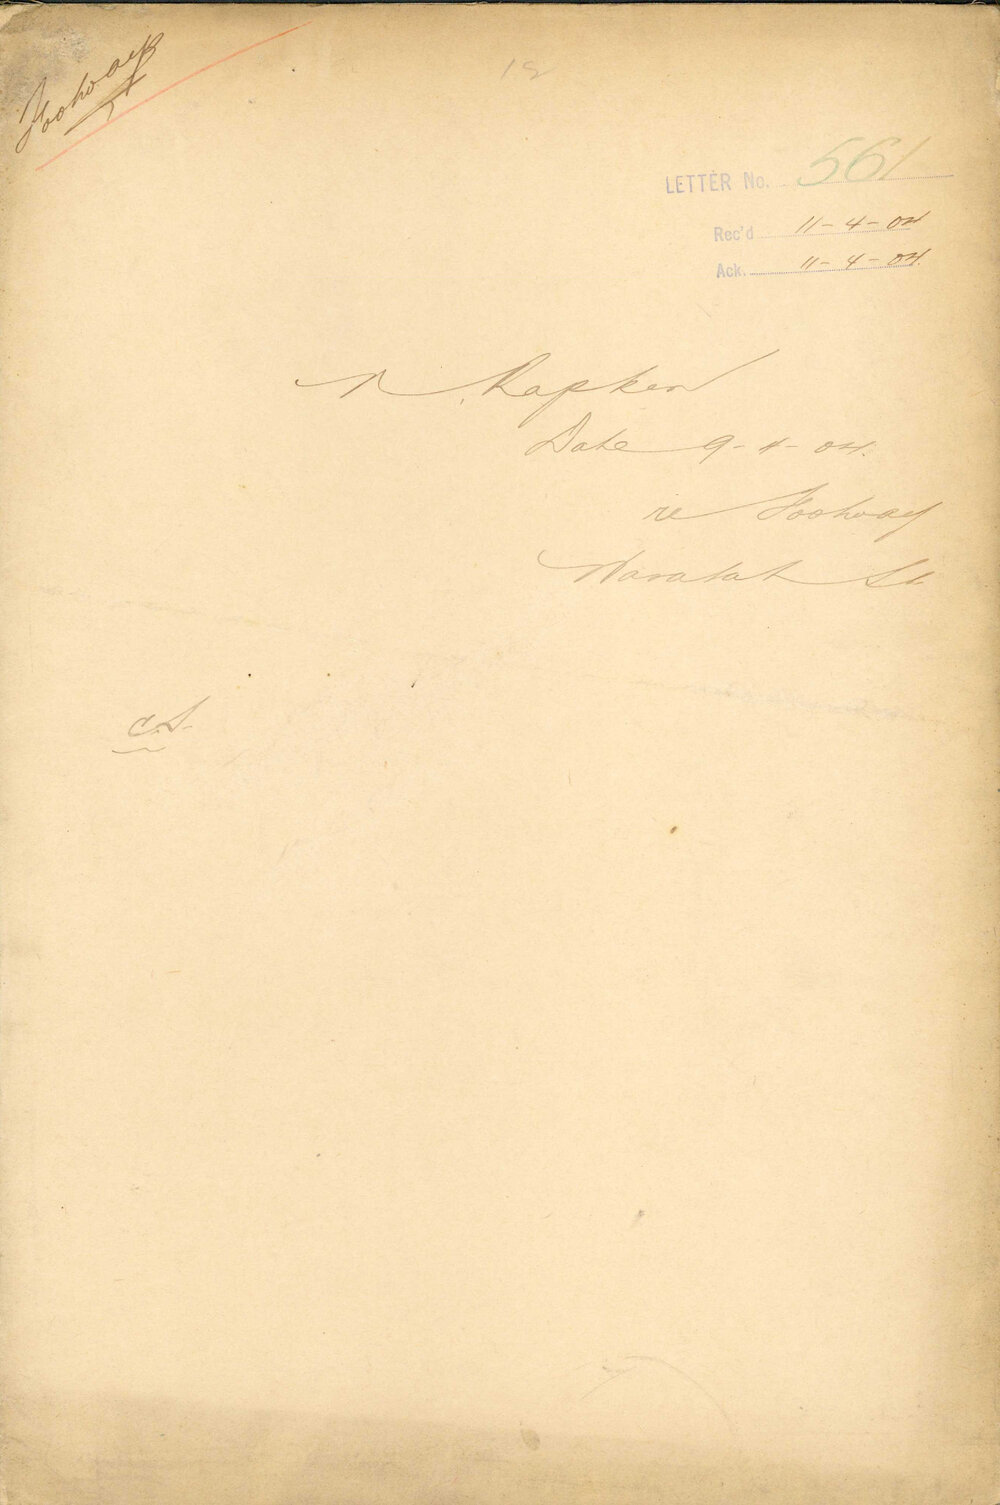 Footway
19
LETTER No. 561
Rec'd 11-4-04
Ack. 11-4-04.
Rapken
Date 9-4-04.
re Footway
Waratah St
C.S.